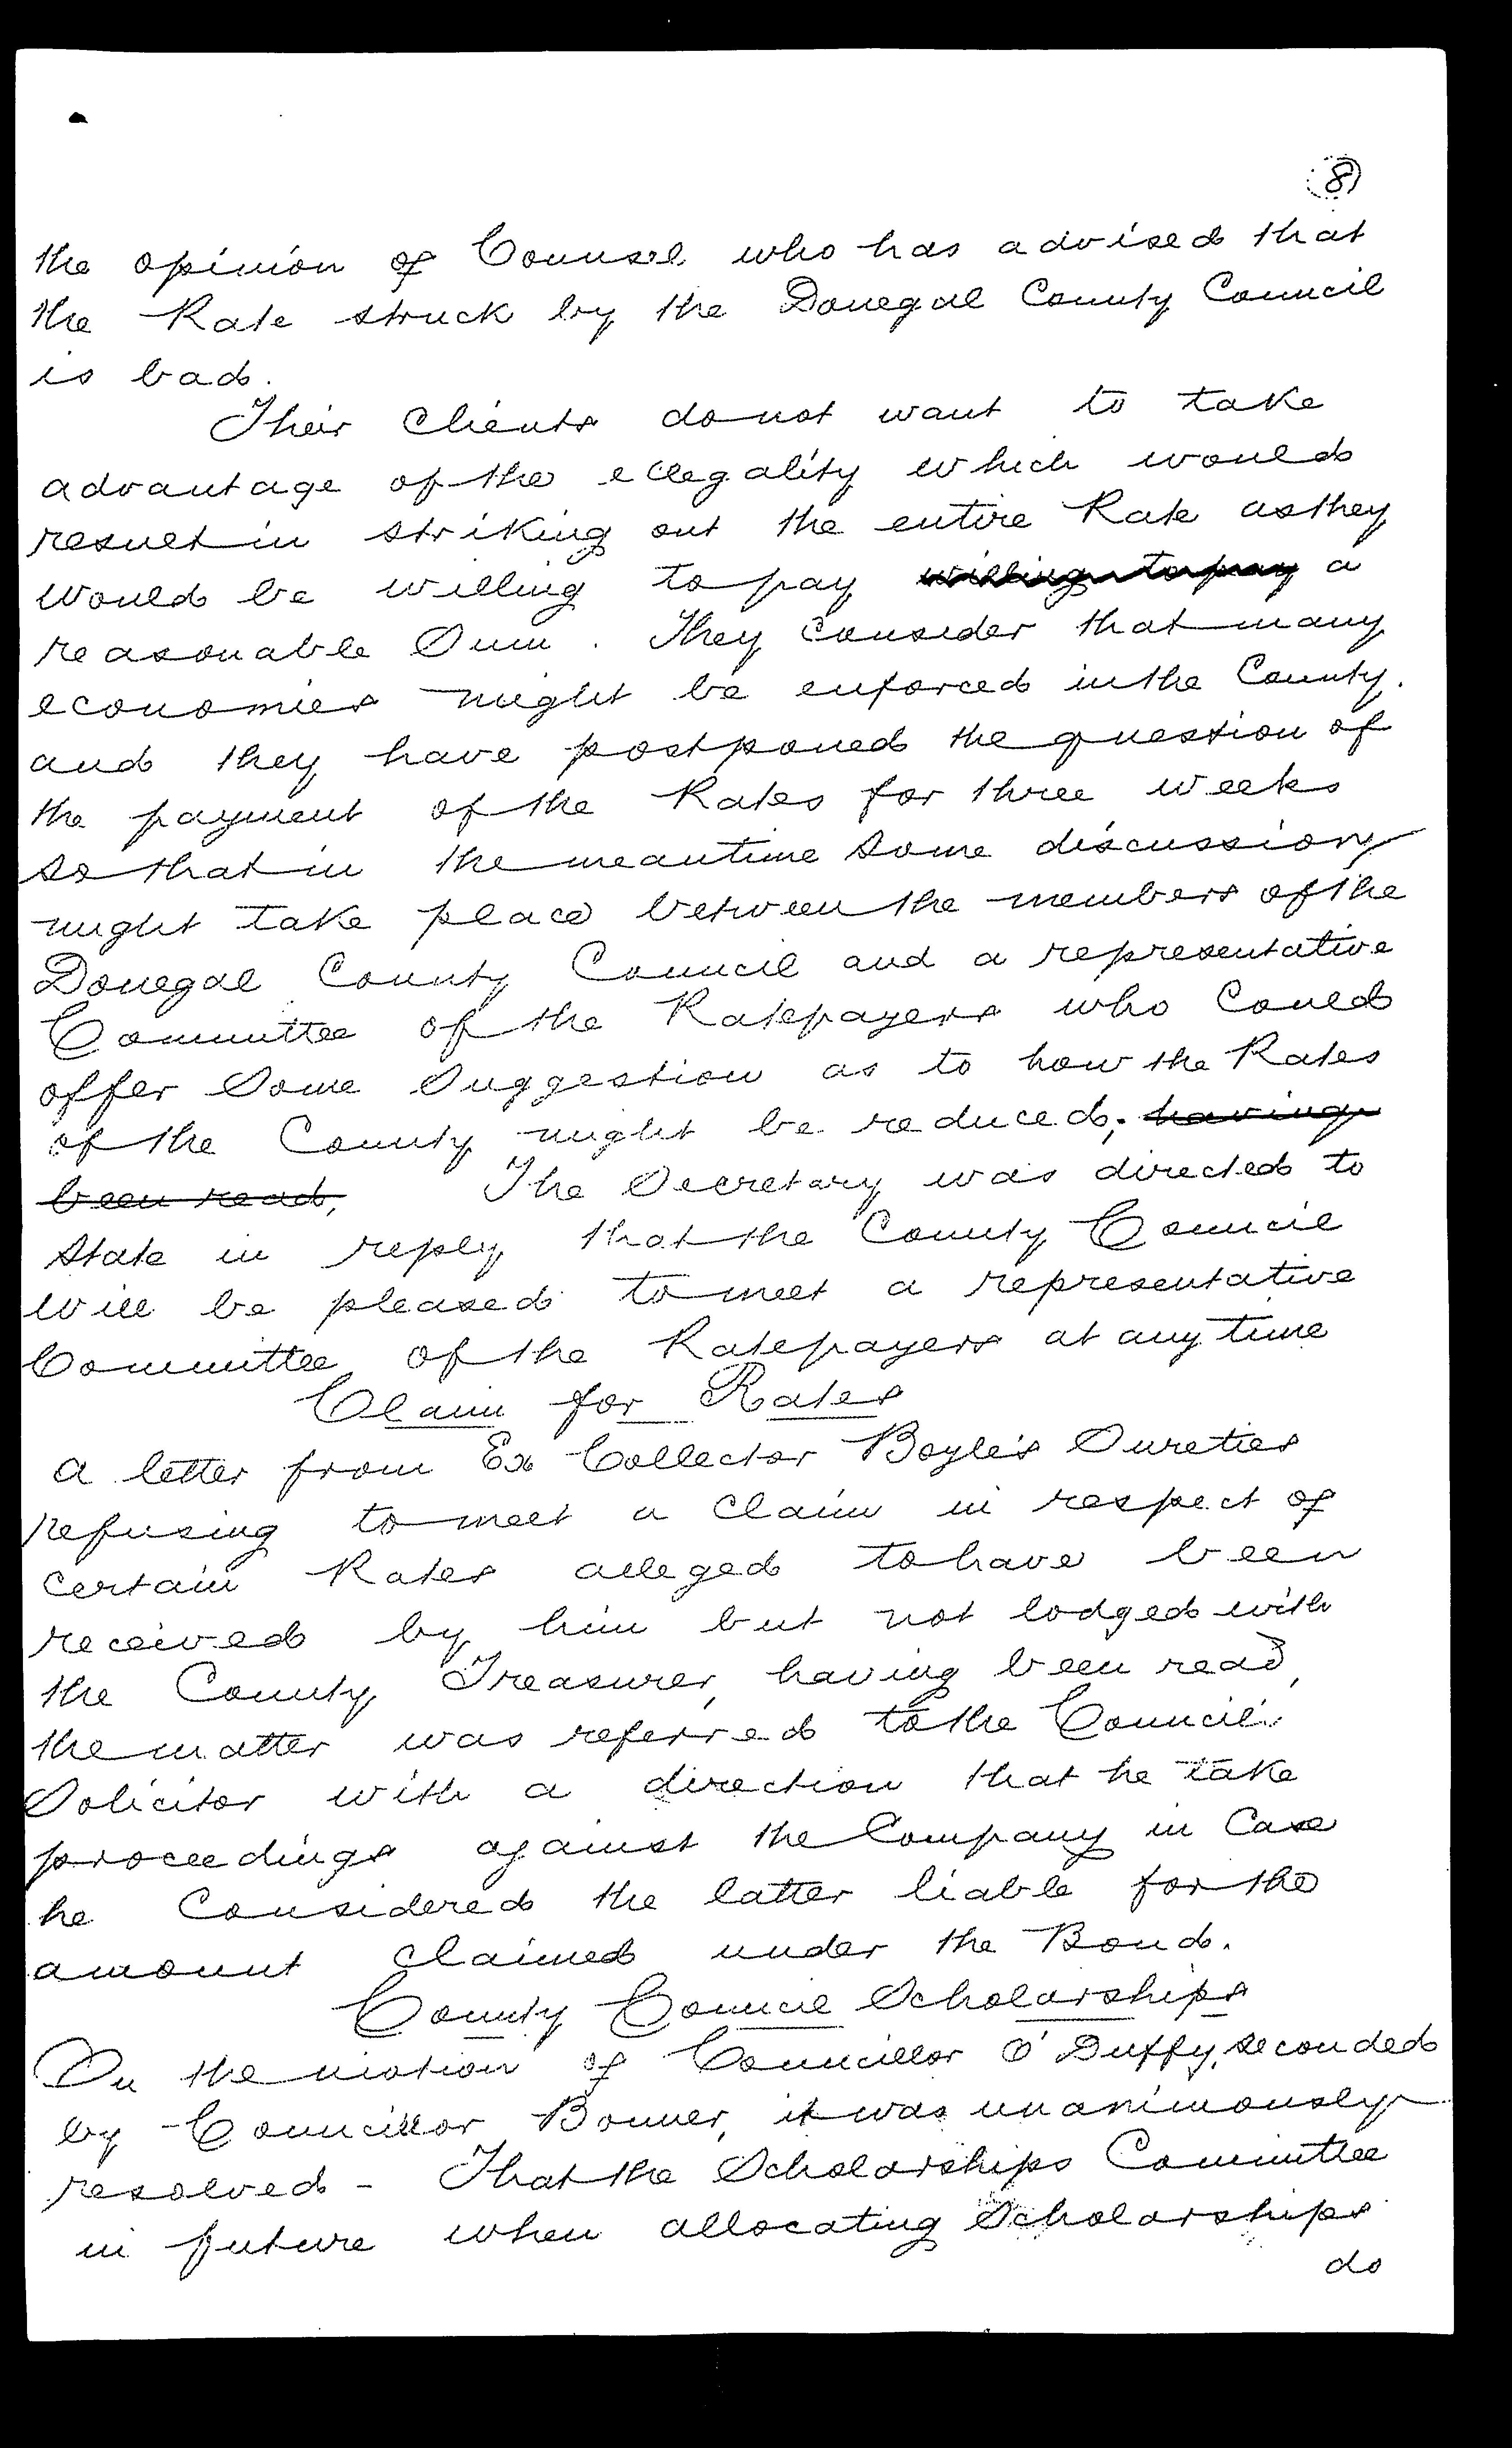 8
the opinion of Counsel who has advised that
the Rate struck by the Donegal County Council
is bad.
Their Clients do not want to take
advantage of the illegality which would
result in striking out the entire Rate as they
would be willing to pay ~~willing to pay~~ a
reasonable Sum. They consider that many
economies might be enforced in the County.
and they have postponed the question of
the payment of the Rates for three weeks
so that in the meantime some discussion
might take place between the members of the
Donegal County Council and a representative
Committee of the Ratepayers who could
offer Some Suggestion as to how the Rates
of the County might be reduced; ~~having~~
~~been read,~~ The Secretary was directed to
state in reply that the County Council
will be pleased to meet a representative
Committee of the Ratepayers at any time
Claim for Rates
A letter from Ex Collector Boyle's Sureties
refusing to meet a Claim in respect of
certain Rates alleged to have been
received by him but not lodged with
the County Treasurer, having been read,
the matter was referred to the Council
Solicitor with a direction that he take
proceedings against the Company in Case
he Considered the latter liable for the
amount claimed under the Bond.
County Council Scholarships
On the motion of Councillor O'Duffy, seconded
by Councillor Bonner, it was unanimously
resolved - That the Scholarships Committee
in future when allocating Scholarships
do